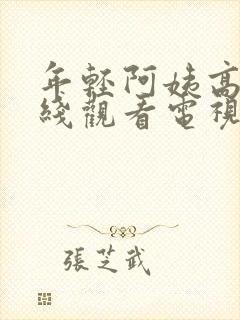 年輕阿姨高
綫觀看電視
張芝武